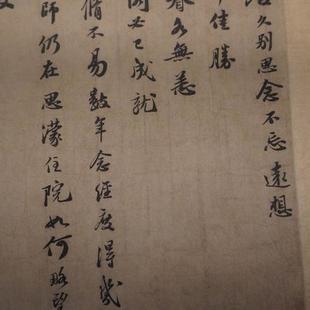 久别思念不忘遠想
中佳勝
眷各無恙
閣必已成就
脩不易數年念經度得幾
師仍在思濛住院如何略望